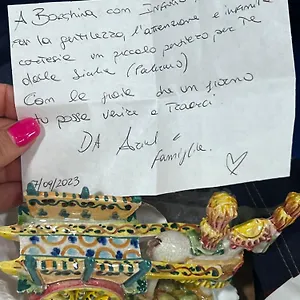 A Bacchina con Infinito
Per la gentilezza, l'attenzione e infinita
cortesia un piccolo pensiero per Te
dalla Sicilia (Palermo)
Con la gioia che un giorno
tu possa venire a Trovarci.
DA
famiglia.
7/04/2023